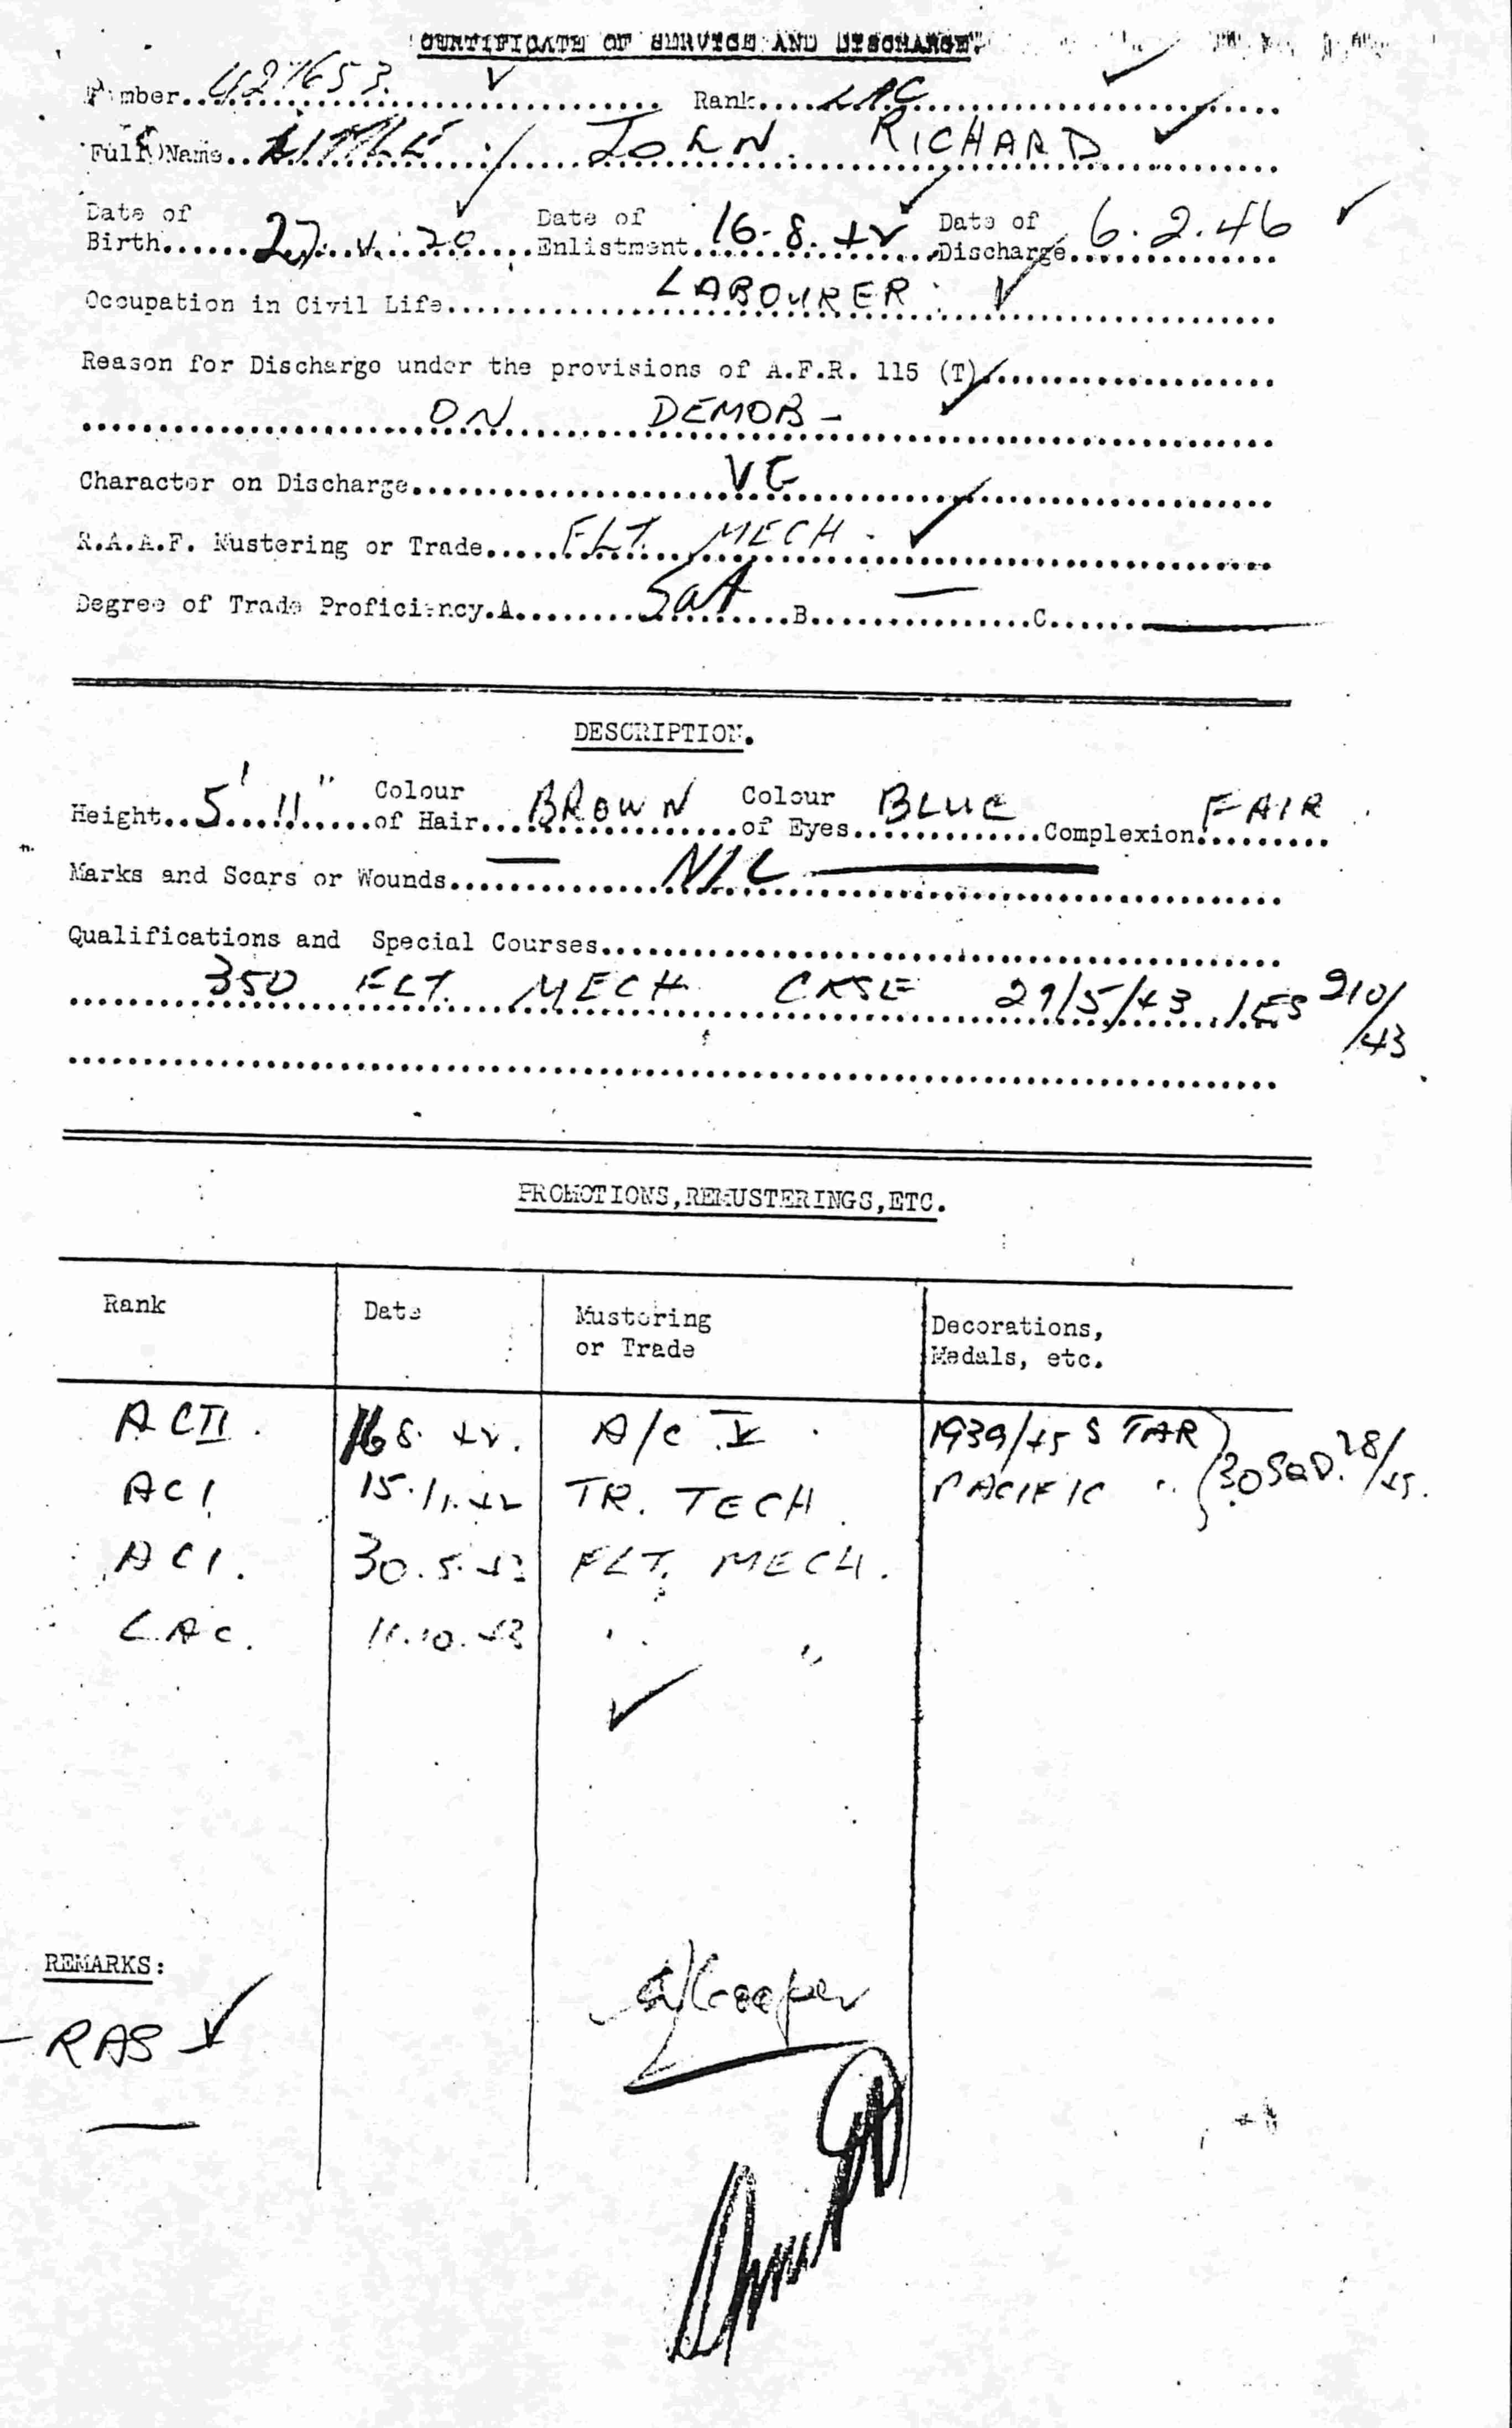 CERTIFICATE OF SERVICE AND DISCHARGE"
Number..427653. Rank....LAC
Full Name.. LITTLE JOHN RICHARD
Date of Birth......27.V.20 Date of Enlistment.16.8.42 Date of Discharge.6.2.46
Occupation in Civil Life......LABOURER
Reason for Discharge under the provisions of A.F.R. 115 (T)
ON DEMOB -
Character on Discharge......VG
R.A.A.F. Mustering or Trade.....FLT. MECH.
Degree of Trade Proficiency.A......Sat B...... — C......
DESCRIPTION.
Height..5' 11" Colour of Hair...BROWN Colour of Eyes...BLUE Complexion.FAIR
Marks and Scars or Wounds...... — NIL —
Qualifications and Special Courses......
350 FLT. MECH CRSE 29/5/43 1ES 210/43
PROMOTIONS,REMUSTERINGS,ETC.
Rank Date Mustering or Trade Decorations, Medals, etc.
ACII. 16 8. 42. A/C V. 1939/45 STAR
AC1 15.11.42 TR. TECH. PACIFIC " 30 SQD. 28/45.
AC1. 30.5.43 FLT. MECH.
L.A.C. 11.10.43 " "
REMARKS:
- RAS